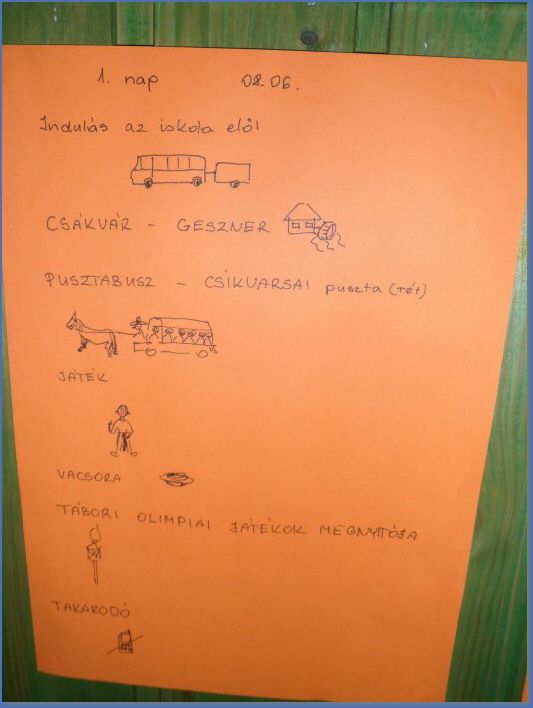 1. nap 08.06.
Indulás az iskola elől
CSÁKVÁR - GESZNER
PUSZTABUSZ - CSÍKVARSAI puszta (rét)
JÁTÉK
VACSORA
TÁBORI OLIMPIAI JÁTÉKOK MEGNYITÓJA
TAKARODÓ